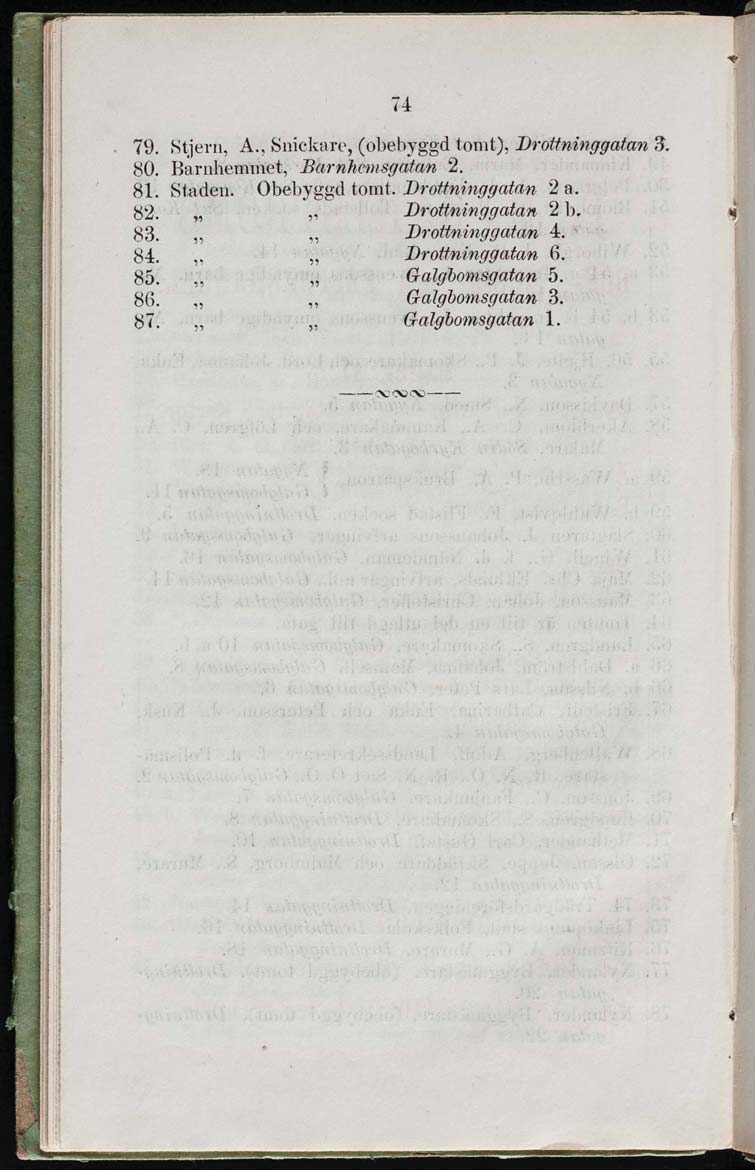 74
79. Stjern, A., Snickare, (obebyggd tomt), Drottninggatan 3.
80. Barnhemmet, Barnhemsgatan 2.
81. Staden. Obebyggd tomt. Drottninggatan 2 a.
82. „ „ Drottninggatan 2 b.
83. „ „ Drottninggatan 4.
84. „ „ Drottninggatan 6.
85. „ „ Galgbomsgatan 5.
86. „ „ Galgbomsgatan 3.
87. „ „ Galgbomsgatan 1.